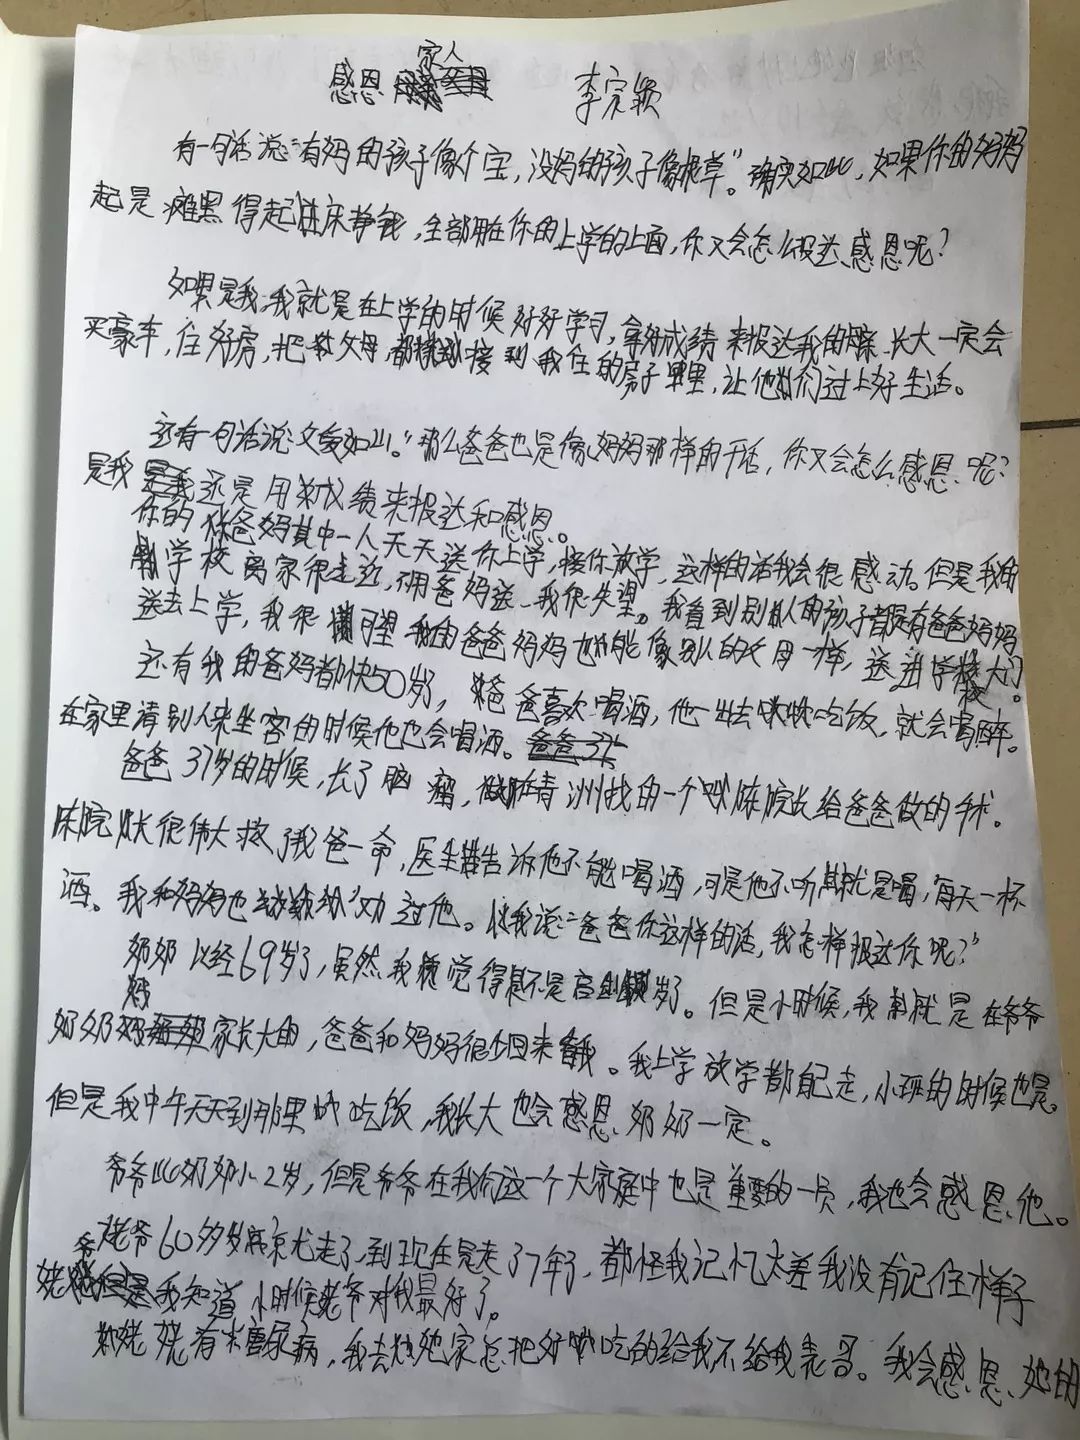 感恩 家人
李宗颖
有一句话说“有妈的孩子像个宝，没妈的孩子像根草”。确实如此，如果你的妈妈
起是 黑 得起 床挣钱，全部用在你的上学的上面，你又会怎么报达感恩呢？
如果是我，我就是在上学的时候好好学习，拿好成绩来报达我的母亲 长大一定会
买豪车，住好房，把 父母，都 接到我住的房子里，让他们过上好生活。
还有一句话说：父爱如山。”那么爸爸也是像妈妈那样的干活，你又会怎么感恩呢？
是我 还是用 成绩来报达和感恩。
你的 爸妈其中一人天天送你上学，接你放学，这样的话我会很感动。但是我的
学校离家很 近，不用爸妈送，我很失望。我看到别人的孩子都是有爸爸妈妈
送去上学，我很 望我的爸爸妈妈也能像别人的父母一样，送进学校大门。
还有我的爸妈都快50岁了， 爸爸喜欢喝酒，他一出去 吃饭，就会喝醉。
在家里请别人来坐客的时候他也会喝酒。
爸爸37岁的时候，长了脑瘤， 在青洲找的一个 陈院长给爸爸做的手术。
陈院长很伟大救了我爸一命，医生 告诉他不能喝酒，可是他不听 就是喝，每天一杯
酒。我和妈妈也 劝过他。 我说：“爸爸你这样的话，我怎样报达你呢？”
奶奶以经69岁了，虽然我 觉得 不是 岁了。但是小时候，我 就是在爷爷
奶奶 家长大的，爸爸和妈妈很少回来看我。我上学放学都自己走，小班的时候也是。
但是我中午天天到那里 吃饭，我长大也会感恩奶奶一定。
爷爷比奶奶小2岁，但是爷爷在我们这一个大家庭中也是重要的一员，我也会感恩他。
姥爷60多岁 就走了，到现在是走了7年了，都怪我记忆太差我没有记住样子
我知道小时候姥爷对我最好了。
姥姥有糖尿病，我去她家总把好吃的给我不给我表哥。我会感恩她的